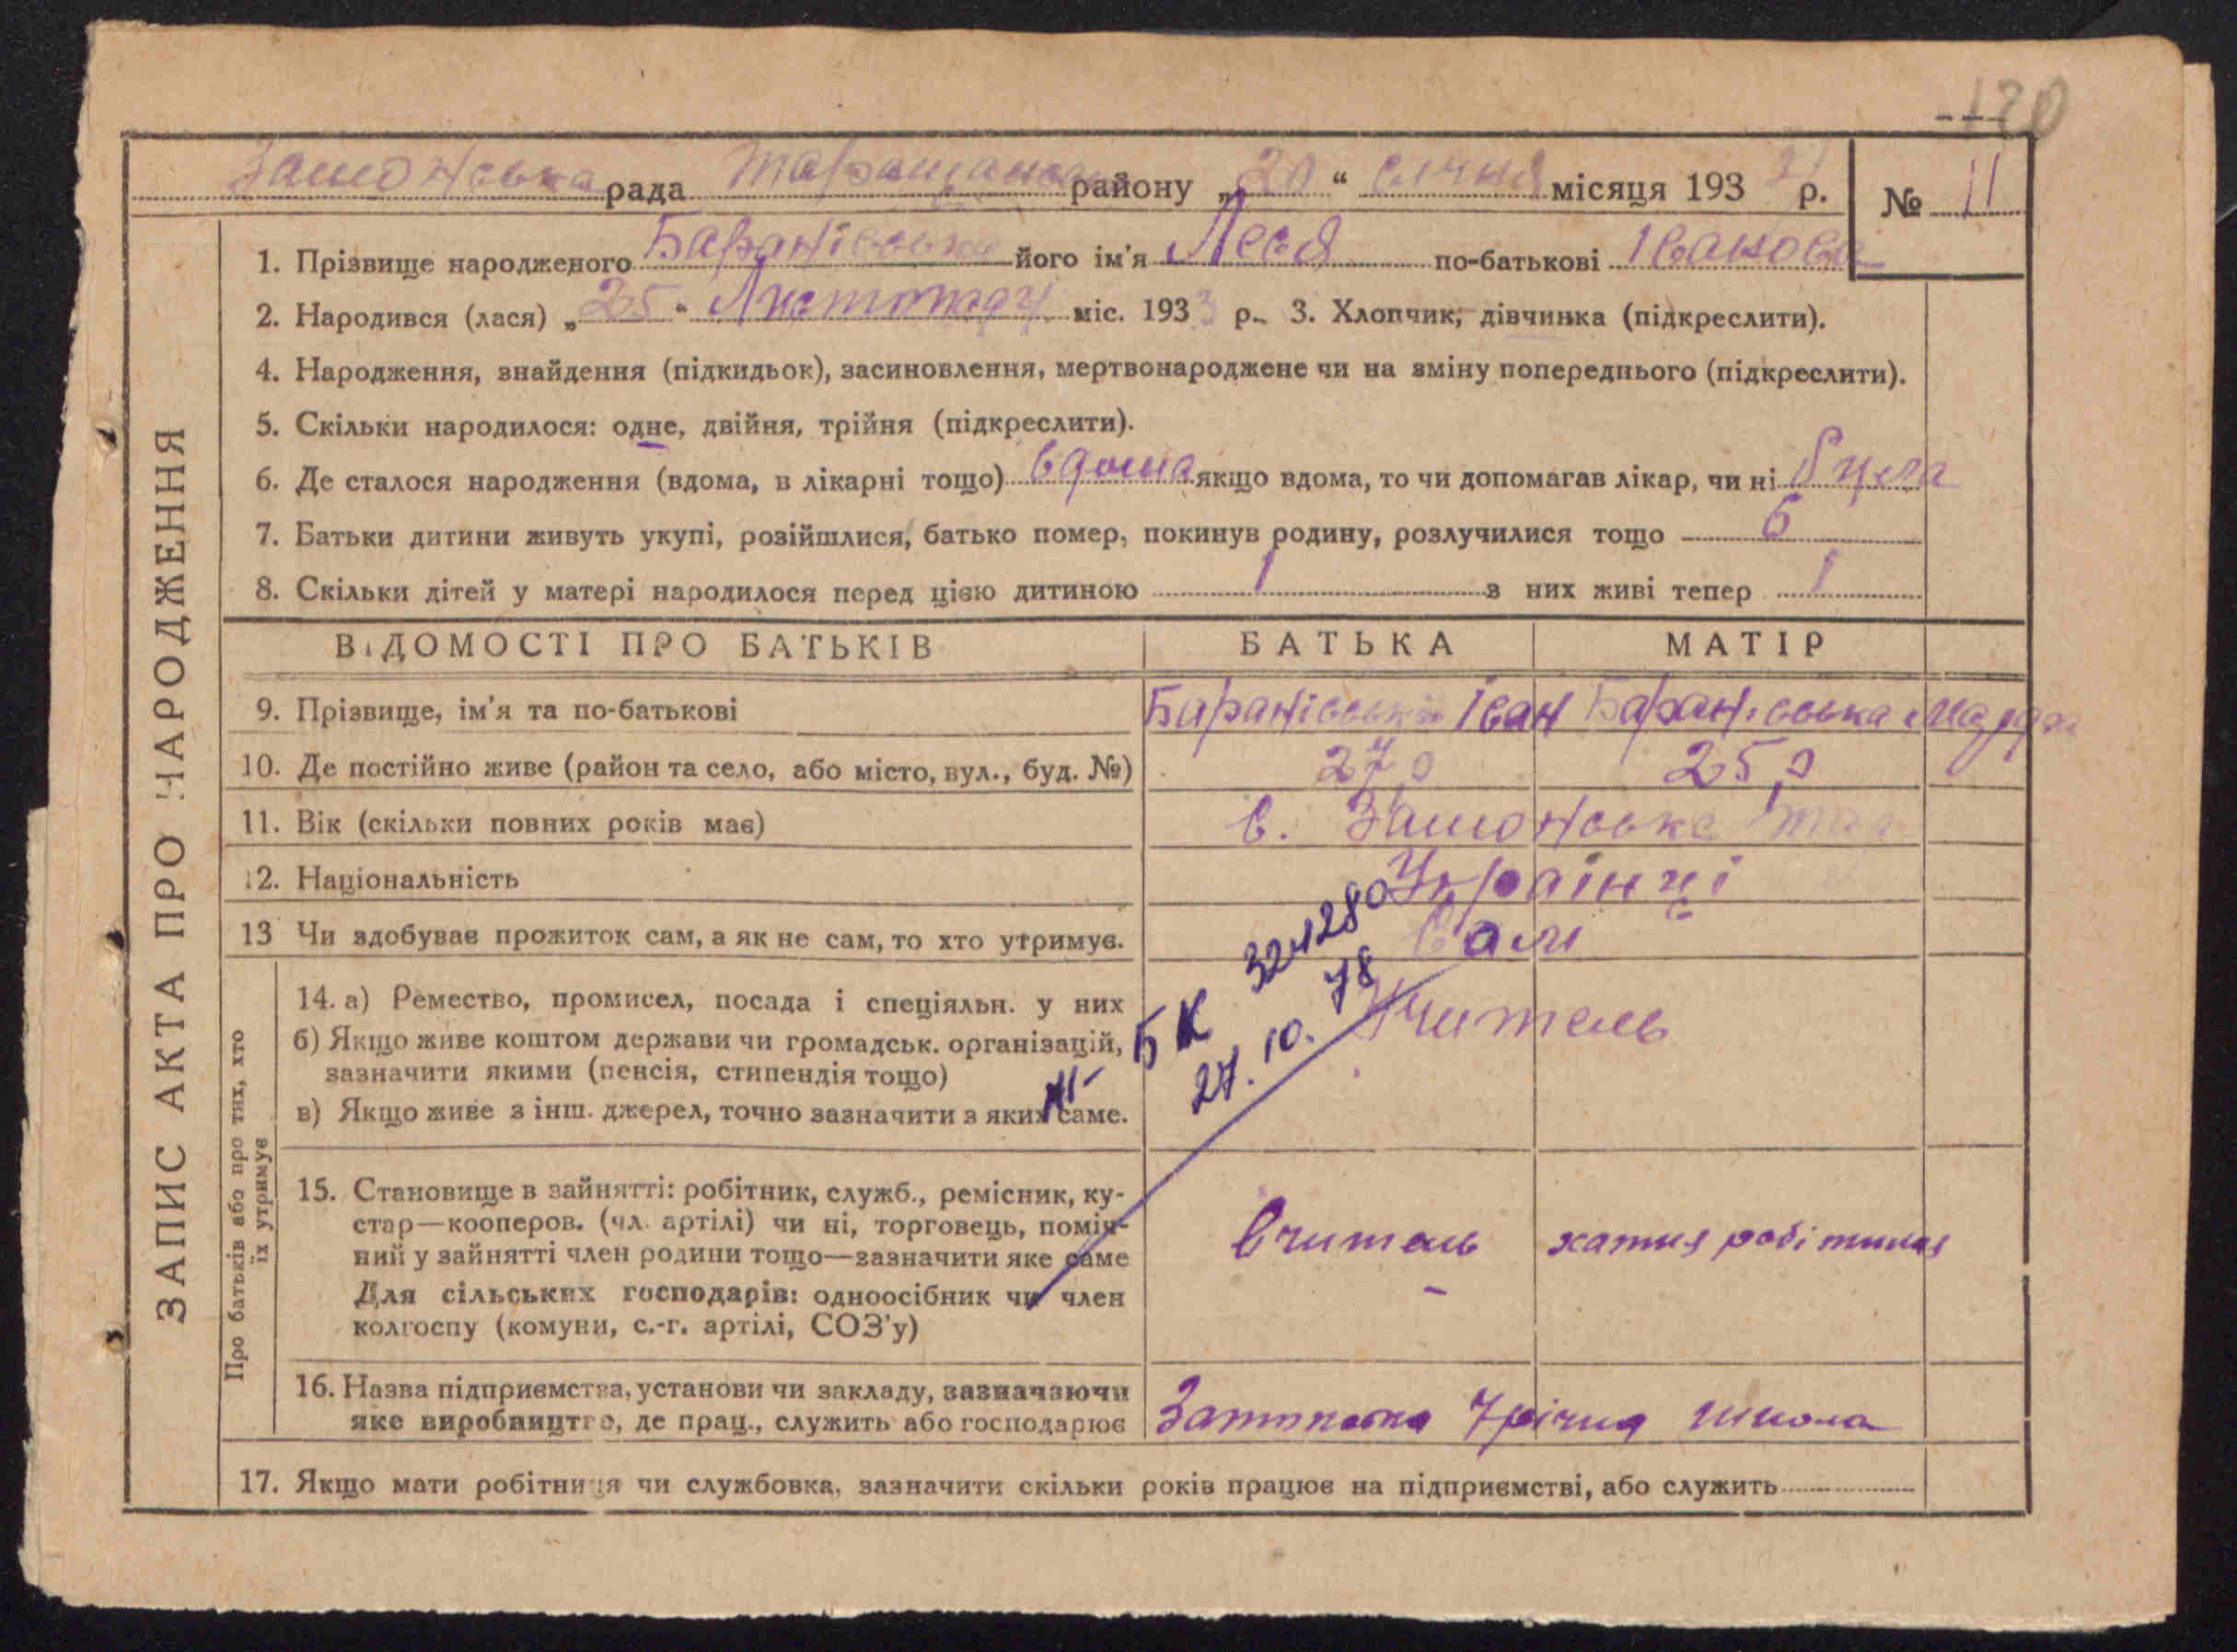 120
рада району „20“ січня місяця 193 р. № 11
1. Прізвище народженого Баранівська його ім'я Леся по-батькові Іванова
2. Народився (лася) „25“ Листопаду міс. 1933 р. 3. Хлопчик, дівчинка (підкреслити).
4. Народження, знайдення (підкидьок), засиновлення, мертвонароджене чи на зміну попереднього (підкреслити).
5. Скільки народилося: одне, двійня, трійня (підкреслити).
6. Де сталося народження (вдома, в лікарні тощо) вдома якщо вдома, то чи допомагав лікар, чи ні
7. Батьки дитини живуть укупі, розійшлися, батько помер, покинув родину, розлучилися тощо
8. Скільки дітей у матері народилося перед цією дитиною 1 з них живі тепер 1
ВІДОМОСТІ ПРО БАТЬКІВ БАТЬКА МАТІР
9. Прізвище, ім'я та по-батькові Баранівський Іван Баранівська
10. Де постійно живе (район та село, або місто, вул., буд. №) 27 25
11. Вік (скільки повних років має) с.
12. Національність Українці
13 Чи здобуває прожиток сам, а як не сам, то хто утримує. Сам
Про батьків або про тих, хто їх утримує
14. а) Ремество, промисел, посада і спеціяльн. у них Учитель
б) Якщо живе коштом держави чи громадськ. організацій,
зазначити якими (пенсія, стипендія тощо)
в) Якщо живе з інш. джерел, точно зазначити з яких саме.
БК 324280
27. 10. 78
15. Становище в зайнятті: робітник, служб., ремісник, ку-
стар—кооперов. (чл. артілі) чи ні, торговець, поміч-
ний у зайнятті член родини тощо—зазначити яке саме Вчитель хатня робітниця
Для сільських господарів: одноосібник чи член
колгоспу (комуни, с.-г. артілі, СОЗ'у)
16. Назва підприємства, установи чи закладу, зазначаючи
яке виробництво, де прац., служить або господарює 7 річна школа
17. Якщо мати робітниця чи службовка, зазначити скільки років працює на підприємстві, або служить
ЗАПИС АКТА ПРО НАРОДЖЕННЯ